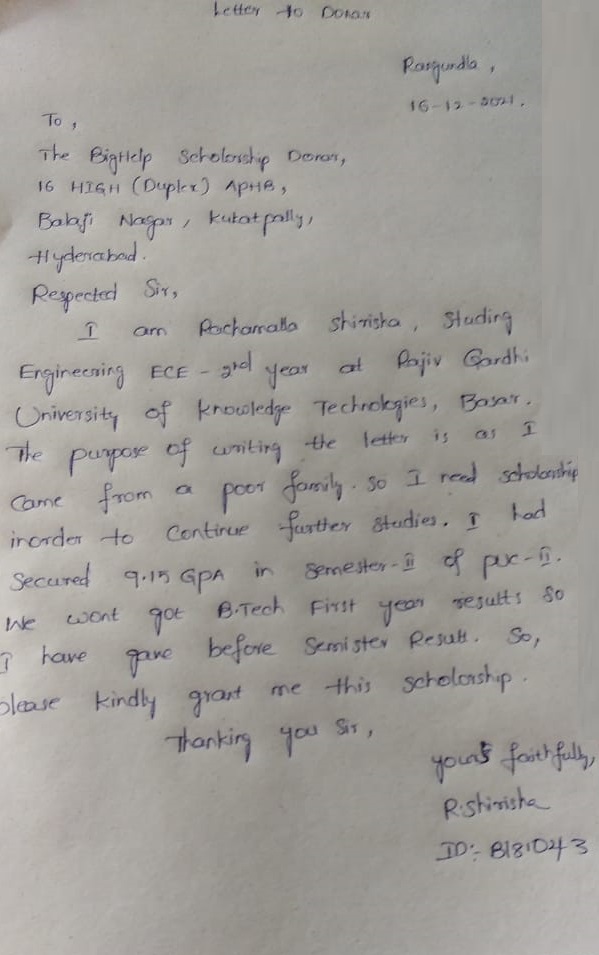 Letter to Donar
Ramgundla,
16-12-2021.
To,
The BigHelp Scholarship Donar,
16 HIGH (Duplex) APHB,
Balaji Nagar, kukatpally,
Hyderabad.
Respected Sir,
I am Rachamalla Shirisha, Studing
Engineering ECE - 2nd year at Rajiv Gandhi
University of knowledge Technologies, Basar.
The purpose of writing the letter is as I
Came from a poor family. so I need scholarship
inorder to Continue further studies. I had
Secured 9.15 GPA in semester-II of puc-II.
We wont got B.Tech First year results so
I have gave before Semister Result. So,
please kindly grant me this scholarship.
Thanking you Sir,
yours faithfully,
R.Shirisha
ID:- B181043